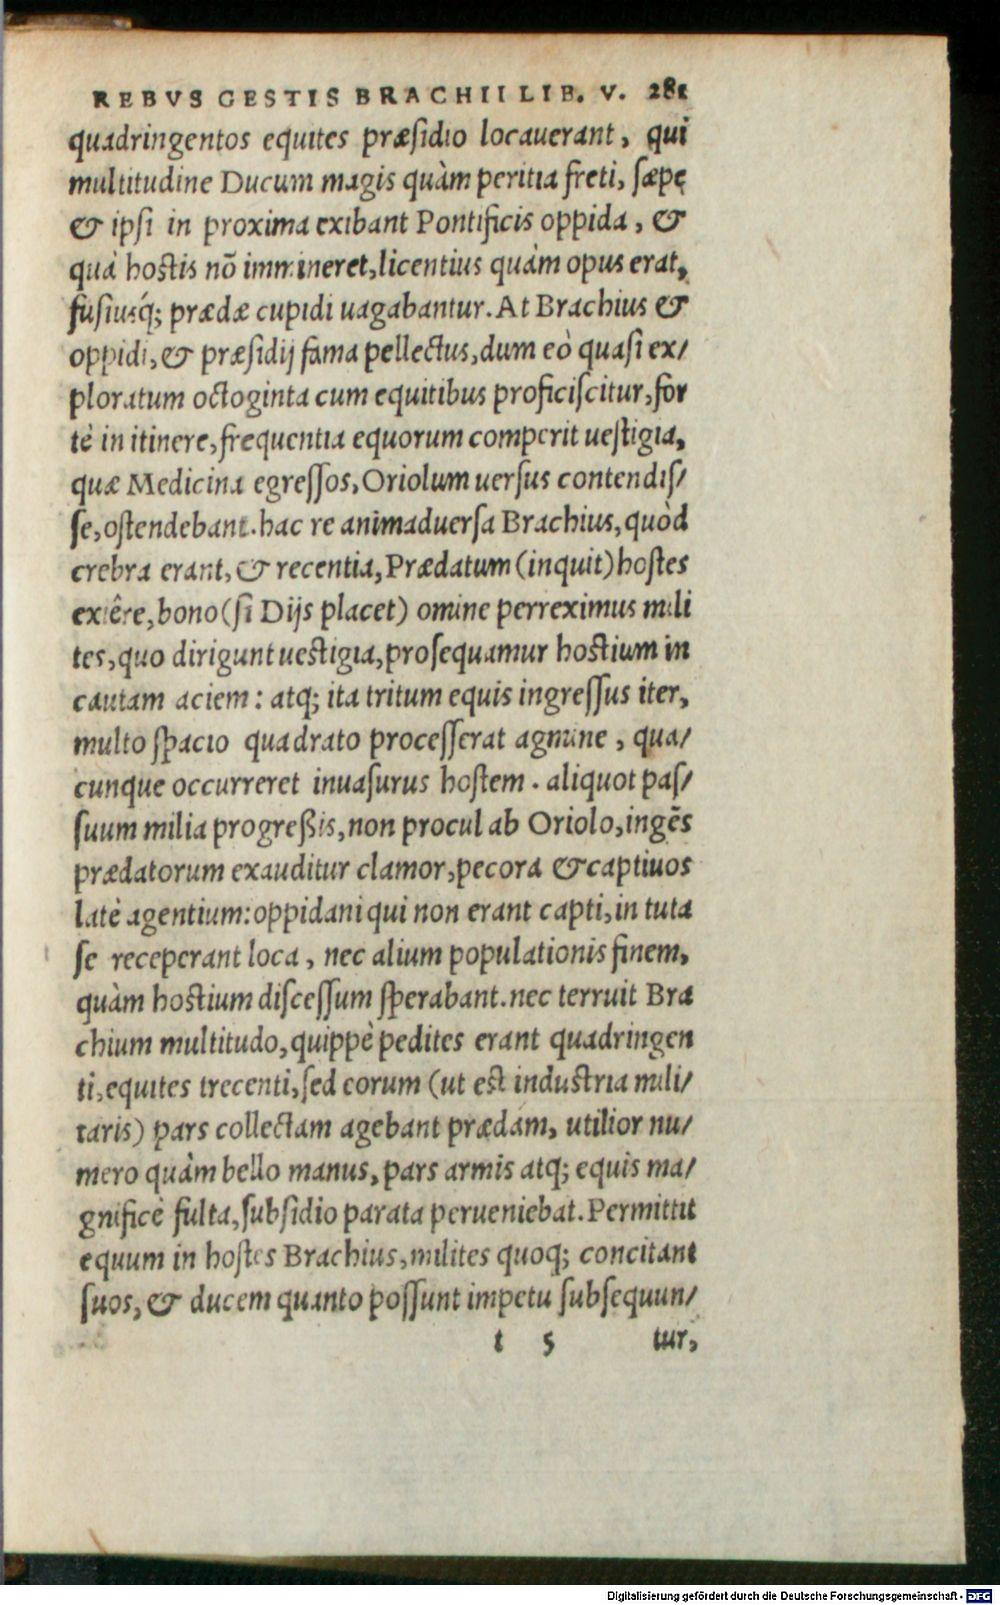 REBVS GESTIS BRACHII LIB. V. 281
quadringentos equites præsidio locauerant, qui
multitudine Ducum magis quàm peritia freti, sæpe
& ipsi in proxima exibant Pontificis oppida, &
quà hostis nõ immineret, licentius quàm opus erat,
fusiusq́; prædæ cupidi uagabantur. At Brachius &
oppidi, & præsidij fama pellectus, dum eò quasi ex/
ploratum octoginta cum equitibus proficiscitur, for
tè in itinere, frequentia equorum comperit uestigia,
quæ Medicina egressos, Oriolum uersus contendis/
se, ostendebant. hac re animaduersa Brachius, quòd
crebra erant, & recentia, Prædatum (inquit) hostes
exiêre, bono (si Dijs placet) omine perreximus mili
tes, quo dirigunt uestigia, prosequamur hostium in
cautam aciem: atq; ita tritum equis ingressus iter,
multo spacio quadrato processerat agmine, qua/
cunque occurreret inuasurus hostem. aliquot pas/
suum milia progreßis, non procul ab Oriolo, ingẽs
prædatorum exauditur clamor, pecora & captiuos
latè agentium: oppidani qui non erant capti, in tuta
se receperant loca, nec alium populationis finem,
quàm hostium discessum sperabant. nec terruit Bra
chium multitudo, quippè pedites erant quadringen
ti, equites trecenti, sed eorum (ut est industria mili/
taris) pars collectam agebant prædam, utilior nu/
mero quàm bello manus, pars armis atq; equis ma/
gnificè fulta, subsidio parata perueniebat. Permittit
equum in hostes Brachius, milites quoq; concitant
suos, & ducem quanto possunt impetu subsequun/
t 5 tur,
Digitalisierung gefördert durch die Deutsche Forschungsgemeinschaft - DFG